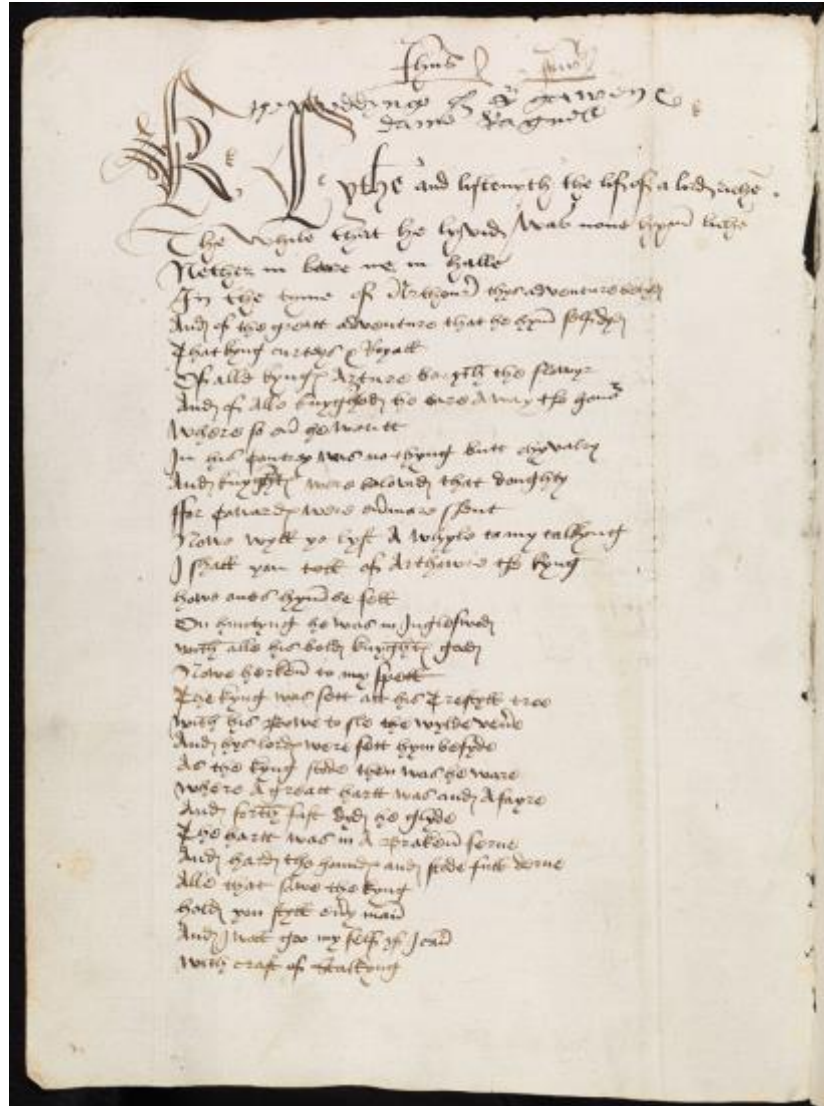 Jhus
The weddynge of Sr Gawen &
dame Ragnell
Lythe and listenyth the lif of a lord riche
The while that he lyvid was none hym liche
Nether in bowre ne in halle
In the tyme of Arthoure thys adventure betyd
And of the greatt adventure that he hym self dyd
That kyng curteys & Royall
Of alle kynges Arture beryth the flowyr
And of alle knyghtod he bare away the honor
Where so evere he wentt
In his contrey was nothyng butt chyvalry
And knyghtes were belovid that doughty
ffor cowardes were evermore shent
Nowe wyll ye lyst a whyle to my talkyng
I shall you tell of Arthowre the kyng
Howe ones hym befell
On huntyng he was in Ingleswod
With alle his bold knyghtes good
Nowe herken to my spell
The kyng was sett att his trestyll tree
With his bowe to sle the wylde venere
And hys lordes were sett hym besyde
As the kyng stode then was he ware
Where a greatt hartt was and a fayre
And forth fast dyd he glyde
The hartt was in a braken ferne
And hard the houndes and stode full derne
Alle that sawe the kyng
Hold you styll every man
And I woll goo my self yf I can
With craft of stalkyng